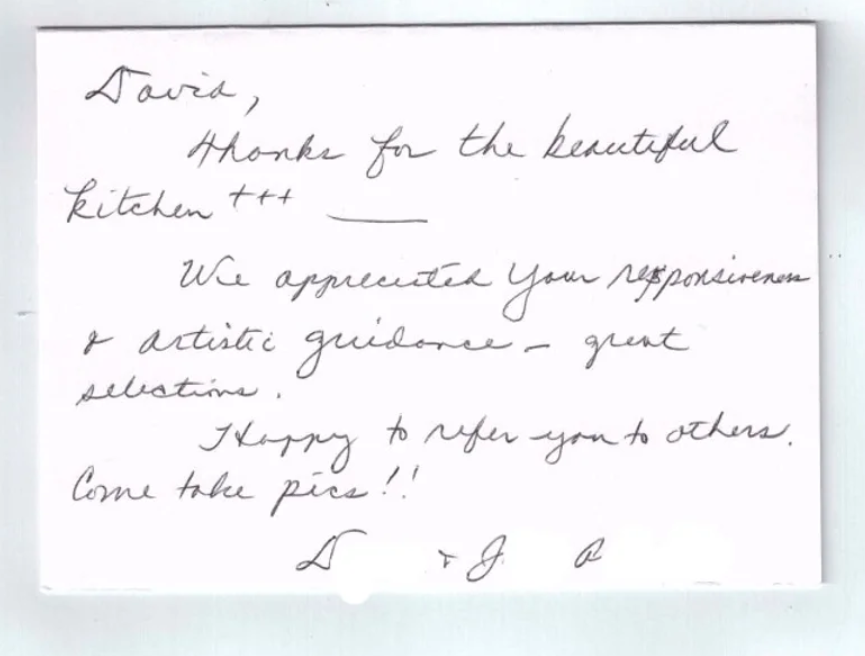 David,
Thanks for the beautiful
kitchen +++ ____
We appreciated your responsiveness
& artistic guidance – great
selections.
Happy to refer you to others.
Come take pics!!
D & J R